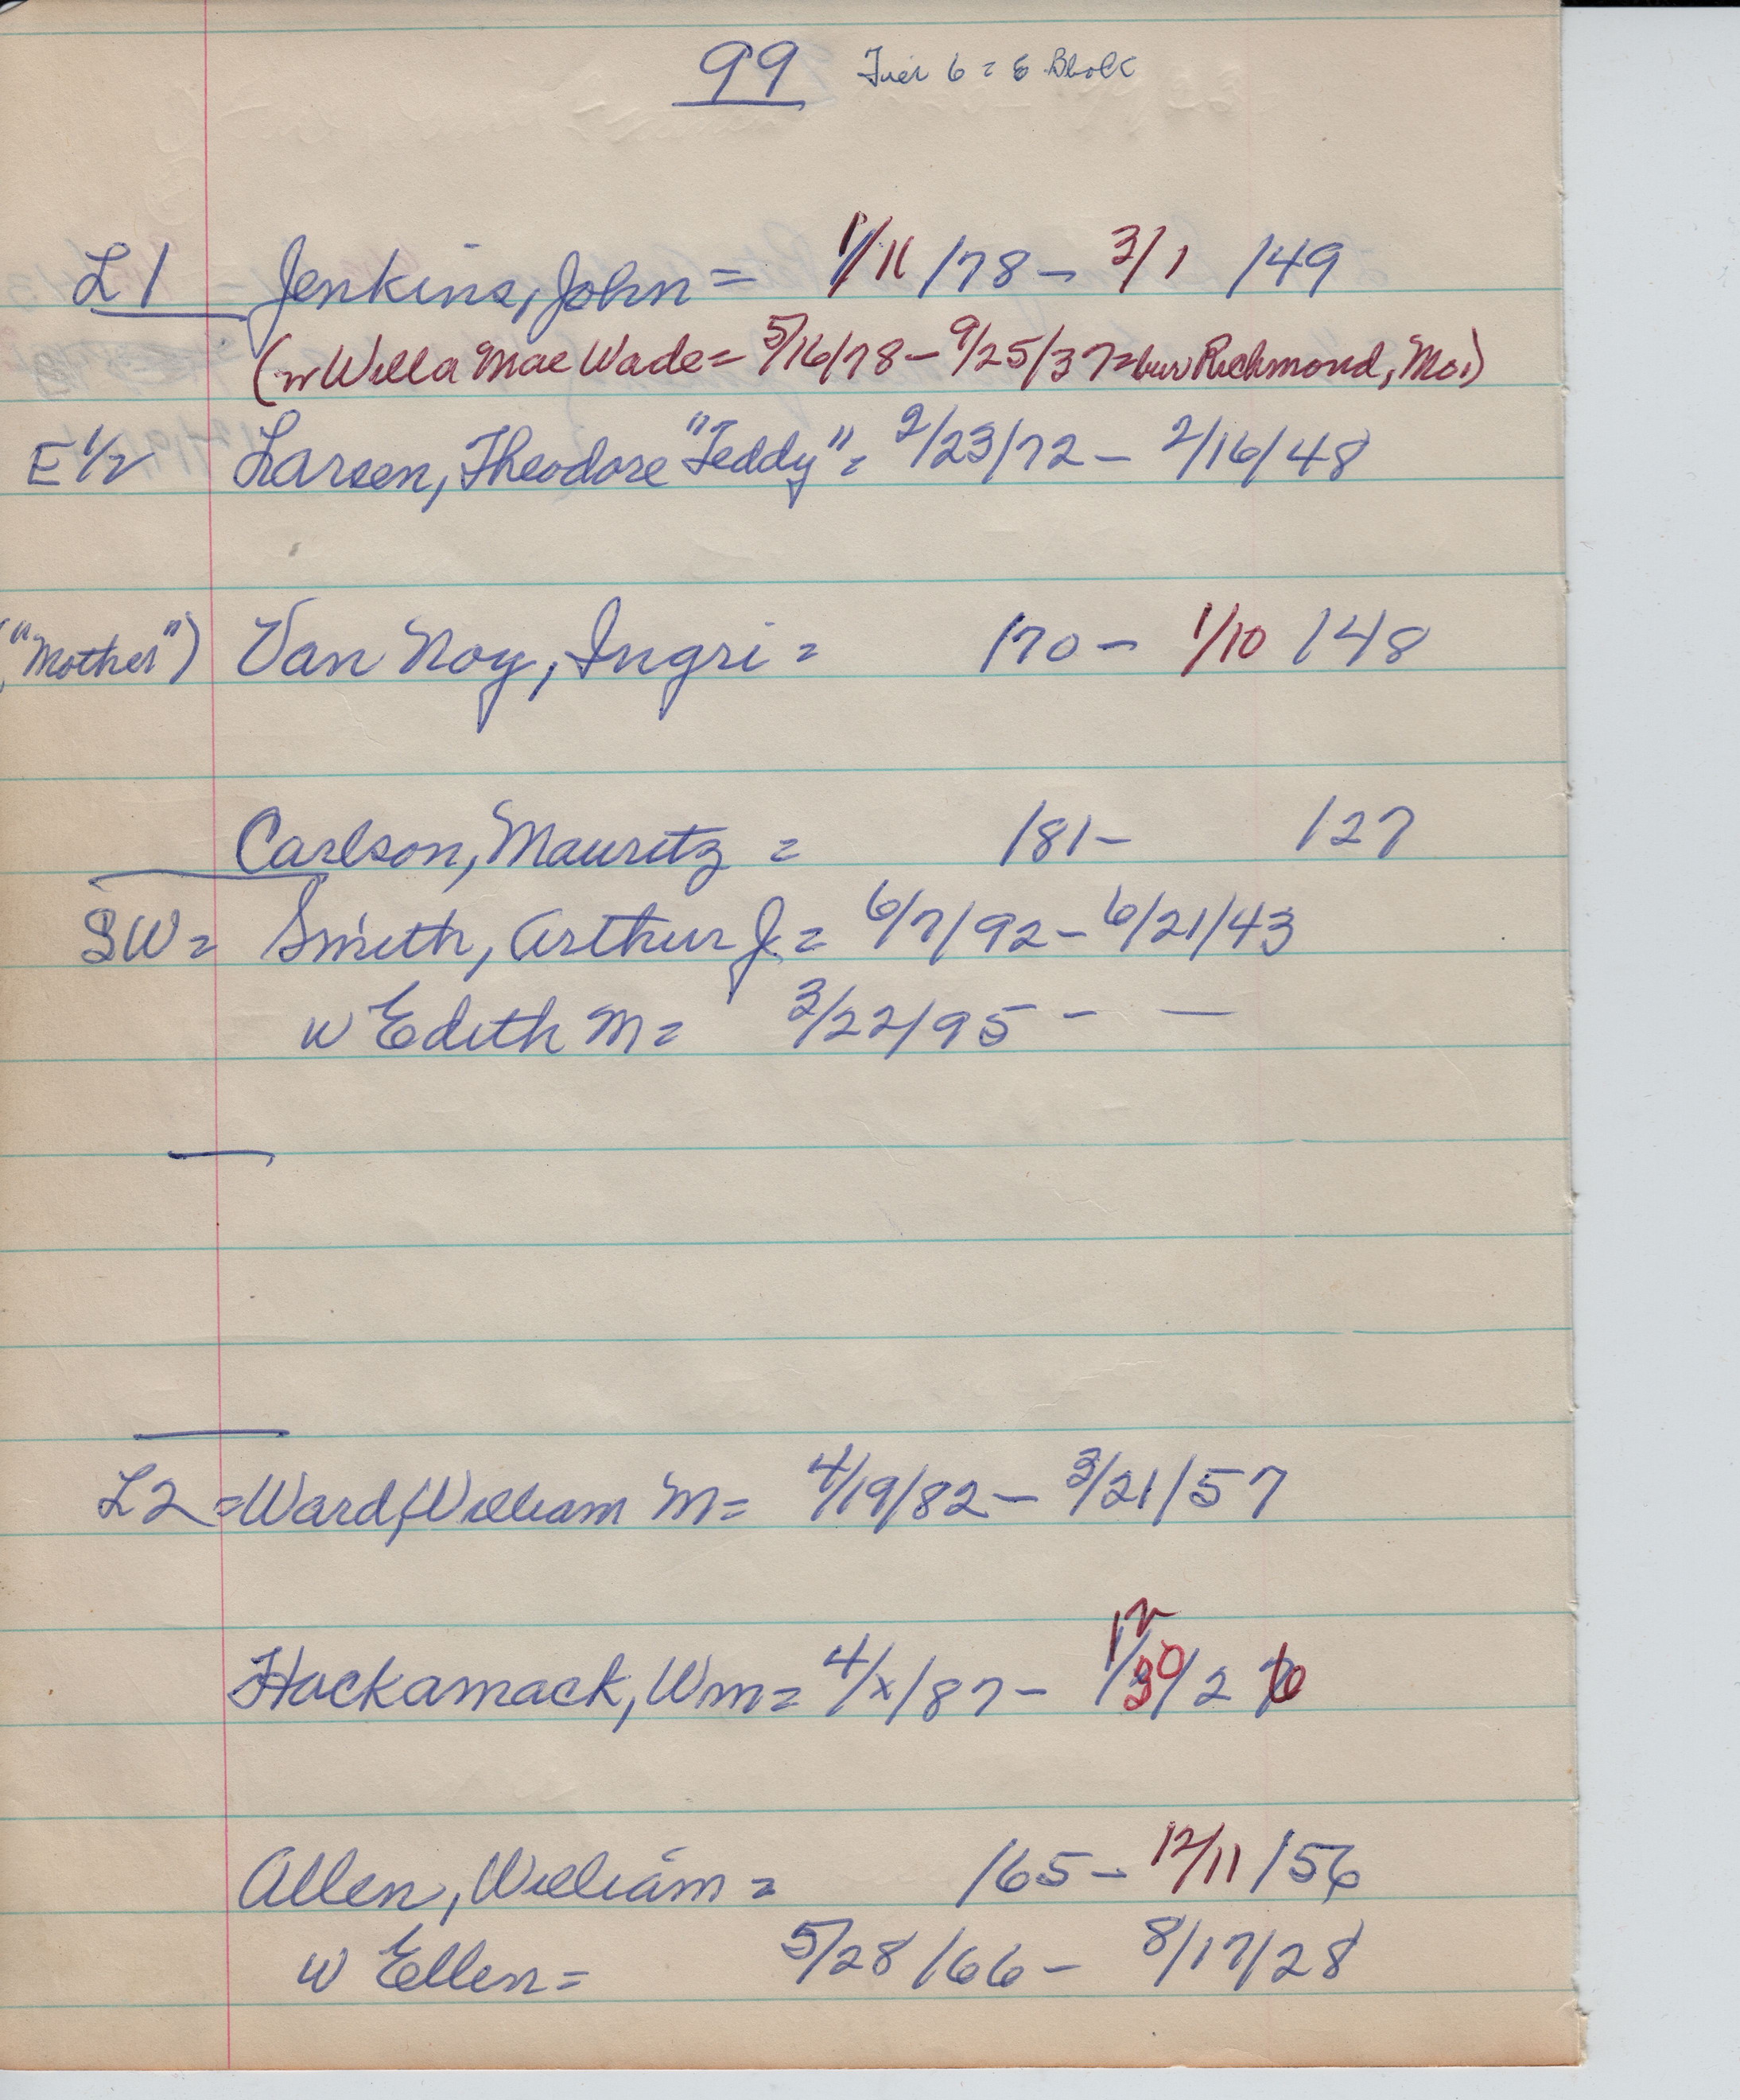 99 Tier 6 = E Block
L1 Jenkins, John = 1/11/78 - 3/1/49
(w Willa Mae Wade = 5/16/78 - 9/25/37 = bur Richmond, Mo.)
E 1/2 Larsen, Theodore "Teddy" = 2/23/72 - 2/16/48
("Mother") Van Noy, Ingri = /70 - 1/10/48
Carlson, Mauritz = /81 - /27
SW = Smith, Arthur J. = 6/7/92 - 6/21/43
w Edith M = 3/22/95 - —
L2 = Ward, William M = 4/19/82 - 3/21/57
Hockamack, Wm = 4/x/87 - 12/30/26
Allen, William = /65 - 12/11/56
w Ellen = 5/28/66 - 8/17/28